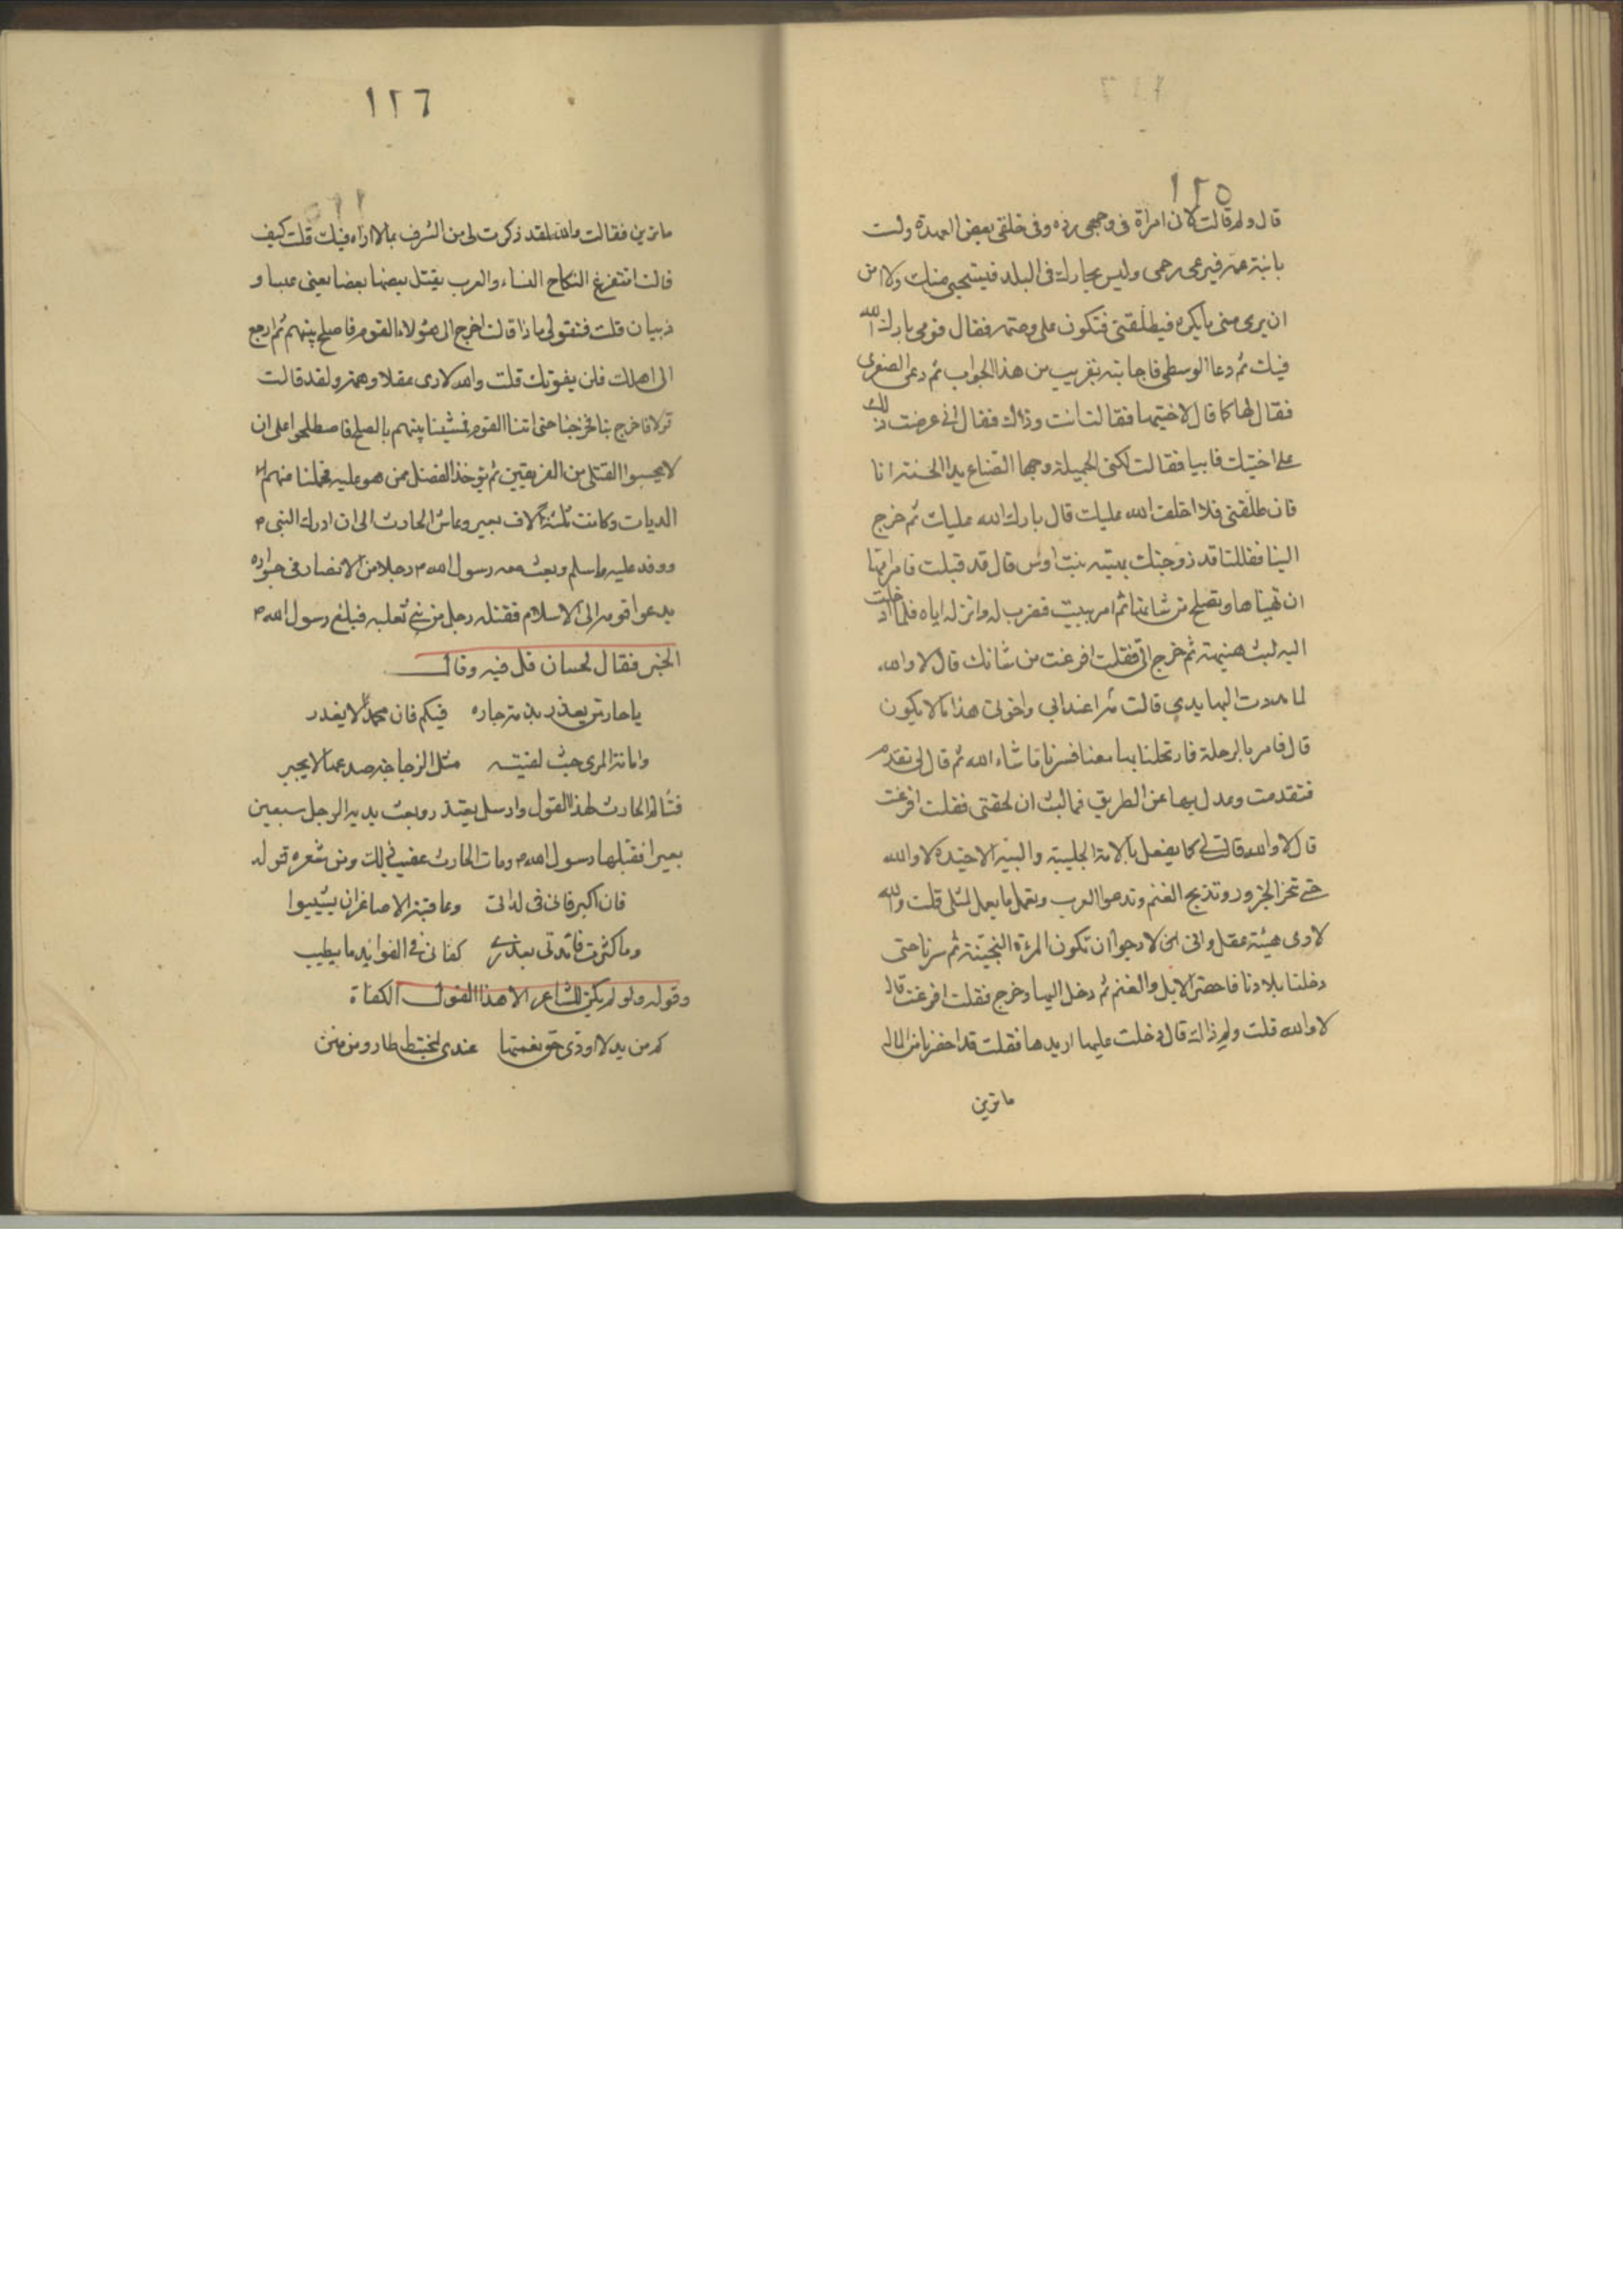 ١٢٥
قال ولم قالت لان امراة فى وجهى رده وفى خلقى بعض العهدة ولست
بابنة عمه فيرعى رحمى وليس بجارك فى البلد فيستحيى منك ولا امن
ان يرى منى ما يكره فيطلقنى فتكون على وصمة فقال قومى بارك الله
فيك ثم دعا الوسطى فاجابته بقريب من هذا الجواب ثم دعى الصغرى
فقال لها كما قال لاختيها فقالت انت وذاك فقال انى عرضت ذلك
على اختيك فابيا فقالت لكنى الجميلة وجها الصناع يدا الحسنة انا
فان طلقنى فلا اخلف الله عليك قال بارك الله عليك ثم خرج
الينا فقال قد زوجتك بهيسه بنت اوس قال قد قبلت فامر امها
ان تهياها وتصلح من شانها ثم امر ببيت فضرب له وانزله اياه فلما ادخلت
اليه لبث هنيهة ثم خرج الى فقلت افرغت من شانك قال لا والله
لما مددت اليها يدي قالت مه اعند ابى واخوتى هذا ما لا يكون
قال فامر بالرحلة فارتحلنا بها معنا فسرنا ما شاء الله ثم قال لى تقدم
فتقدمت وعدل بها عن الطريق فما لبث ان لحقنى فقلت افرغت
قال لا والله قالت لى كما يفعل بالامة الجليبة والسبيه الاخيذه لا والله
حتى تنحر الجزور وتذبح الغنم وتدعوا العرب وتعمل ما يعمل لمثلى قلت والله
لارى هيئة عقل وانى لارجوا ان تكون المرءة النجيبة ثم سرنا حتى
دخلنا بلادنا فاحضر الابل والغنم ثم دخل اليها وخرج فقلت افرغت قال
لا والله قلت ولم ذاك قال دخلت عليها اريدها فقلت قد احضرنا من المال
ما ترين
١٢٦
ما ترين فقالت والله لقد ذكرت لى من الشرف بما لا اراه فيك قلت كيف
قالت اتتفرغ النكاح النساء والعرب يقتل بعضها بعضا يعنى عبسا و
ذبيان قلت فتقولى ماذا قالت اخرج الى هئولاء القوم فاصلح بينهم ثم ارجع
الى اهلك فلن يفوتك قلت والله لارى عقلا وهمة ولقد قالت
قولا فاخرج بنا فخرجنا حتى اتينا القوم فمشينا بينهم بالصلح فاصطلحوا على ان
لا يحسبوا القتلى من الفريقين ثم يؤخذ الفضل ممن هو عليه فحملنا عنهم
الديات وكانت ثلثة آلاف بعير وعاش الحارث الى ان ادرك النبى م
ووفد عليه واسلم وبعث معه رسول الله م رجلا من الانصار فى جواره
يدعوا قومه الى الاسلام فقتله رجل من بنى ثعلبه فبلغ رسول الله م
الخبر فقال لحسان قل فيه وقال
يا حار من يغدر بذمة جاره فيكم فان محمدا لا يغدر
وامانة المرى حيث لقيته مثل الزجاجة صدعها لا يجبر
فتالم الحارث لهذا القول وارسل يعتذر وبعث بدية الرجل سبعين
بعيرا فقبلها رسول الله م ومات الحارث عقيب ذلك ومن شعره قوله
فان اكبر فانى فى لداتى وعاقبة الاصاغر ان يشيبوا
وما كثرت فائدتى بعذرى كفانى فى الفوائد ما يطيب
وقوله ولو لم يكن للشاعر الا هذا القول لكفاة
كم من يد لا اودى حق نعمتها عندى لمختبط طار ومن منن